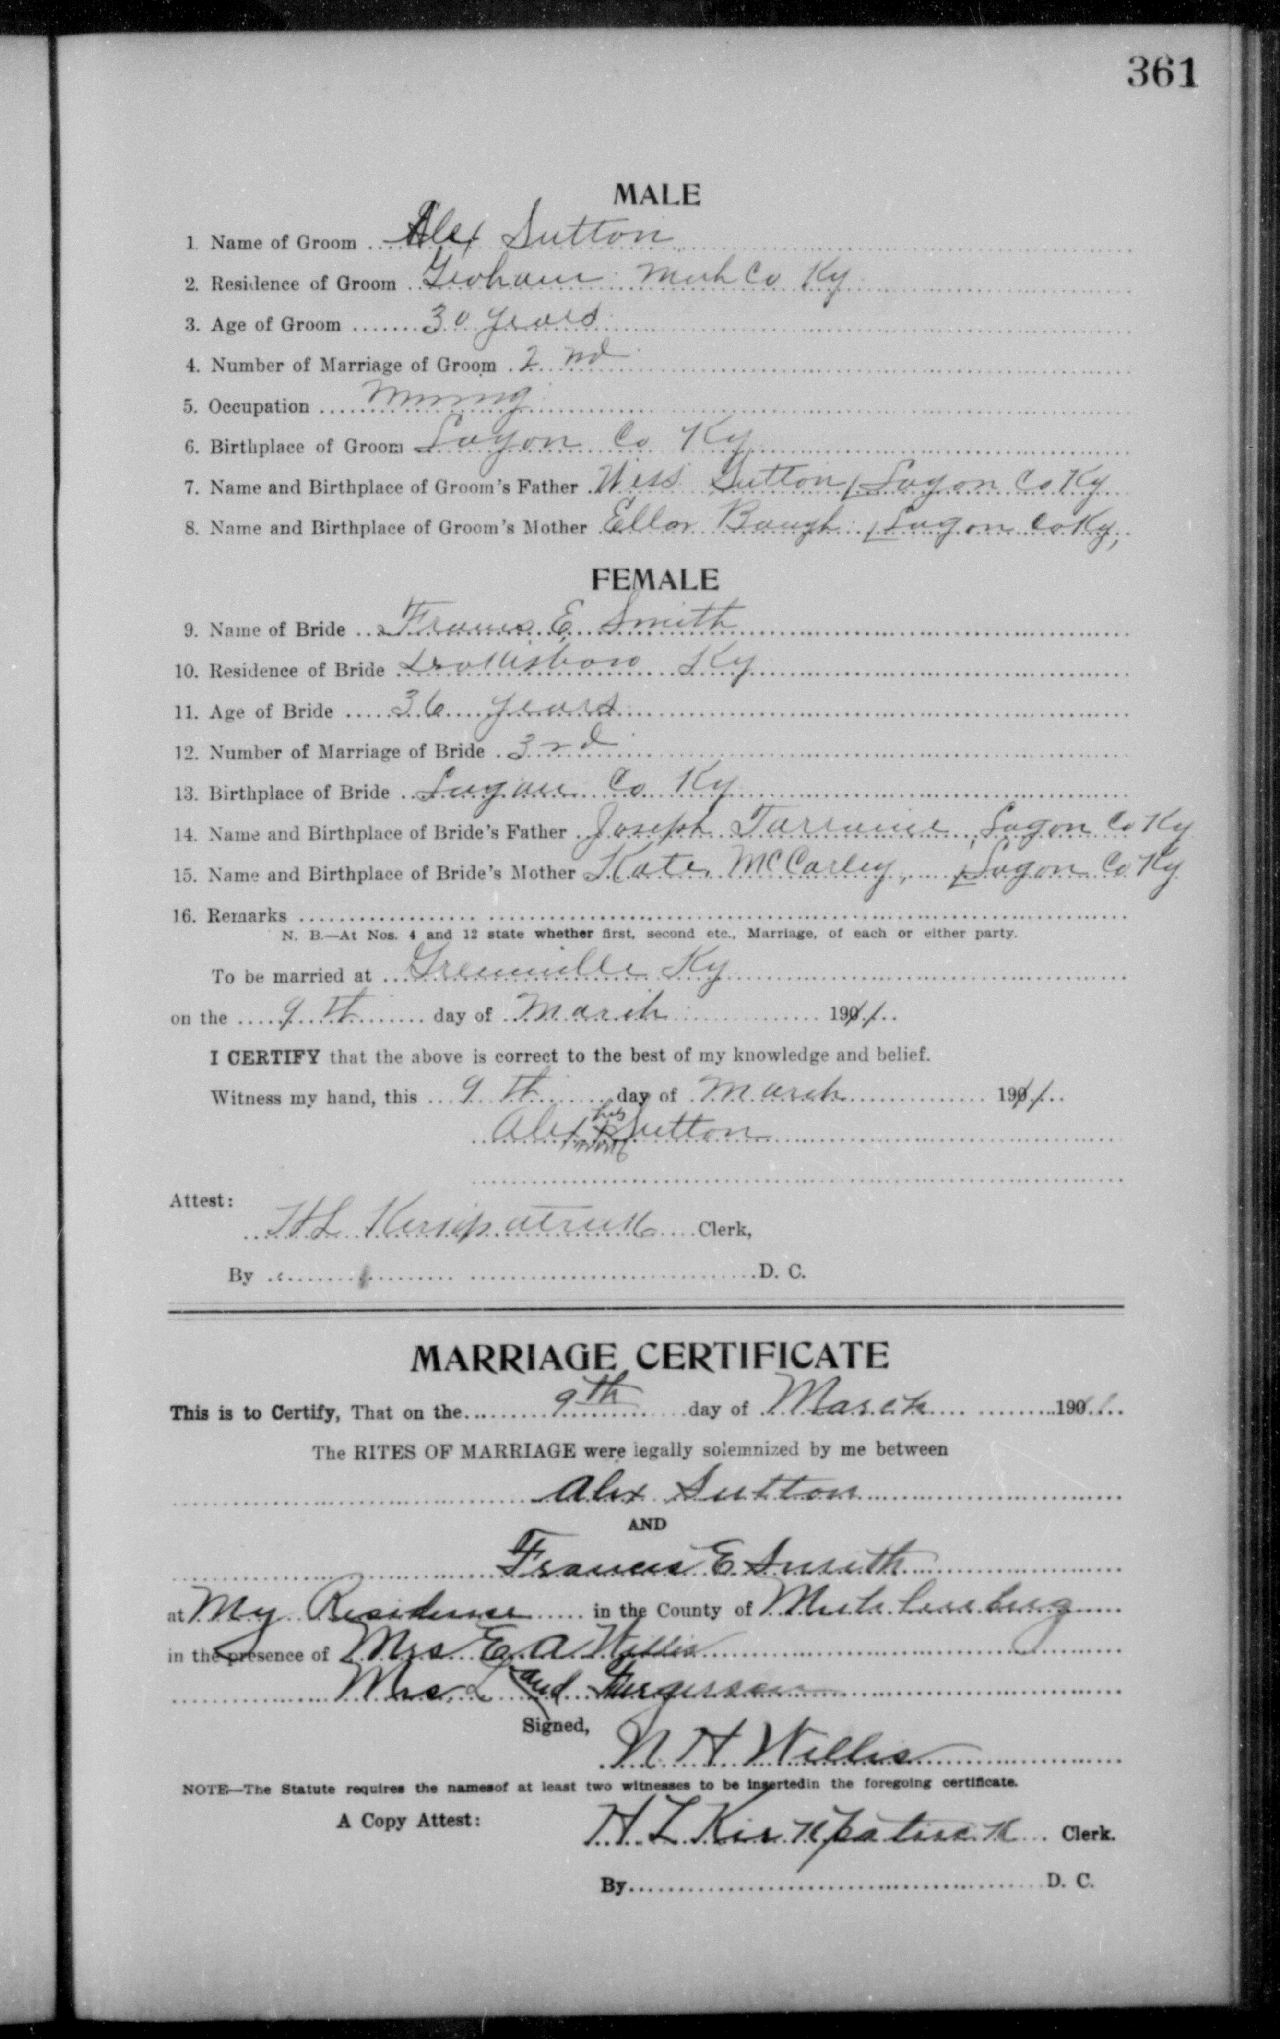 361
MALE
1 Name of Groom Alex Sutton
2. Residence of Groom Graham Muh Co Ky
3. Age of Groom 30 years
4. Number of Marriage of Groom 2nd
5. Occupation Mining
6. Birthplace of Groom Logon Co Ky
7. Name and Birthplace of Groom's Father Wess Sutton, Logon Co Ky
8. Name and Birthplace of Groom's Mother Ellar Baugh, Logon Co Ky,
FEMALE
9. Name of Bride Frances E. Smith
10. Residence of Bride Ky
11. Age of Bride 36 years
12. Number of Marriage of Bride 3rd
13. Birthplace of Bride Logan Co Ky
14. Name and Birthplace of Bride's Father Joseph, Logon Co Ky
15. Name and Birthplace of Bride's Mother Kate McCarley, Logon Co Ky
16. Remarks
N. B.—At Nos. 4 and 12 state whether first, second etc., Marriage, of each or either party.
To be married at Greenville Ky
on the 9th day of March 1911
I CERTIFY that the above is correct to the best of my knowledge and belief.
Witness my hand, this 9th day of March 1911
his
Alex X Sutton
mark
Attest:
H L Kirkpatrick Clerk,
By D. C.
MARRIAGE CERTIFICATE
This is to Certify, That on the 9th day of March 1911
The RITES OF MARRIAGE were legally solemnized by me between
Alex Sutton
AND
Francis E Smith
at My Residence in the County of Muhlenberg
in the presence of Mrs E. A. Willis
and Mrs. L Furgerson
Signed,
N H Willis
NOTE—The Statute requires the namesof at least two witnesses to be insertedin the foregoing certificate.
A Copy Attest: H L Kirkpatrick Clerk.
By D. C.